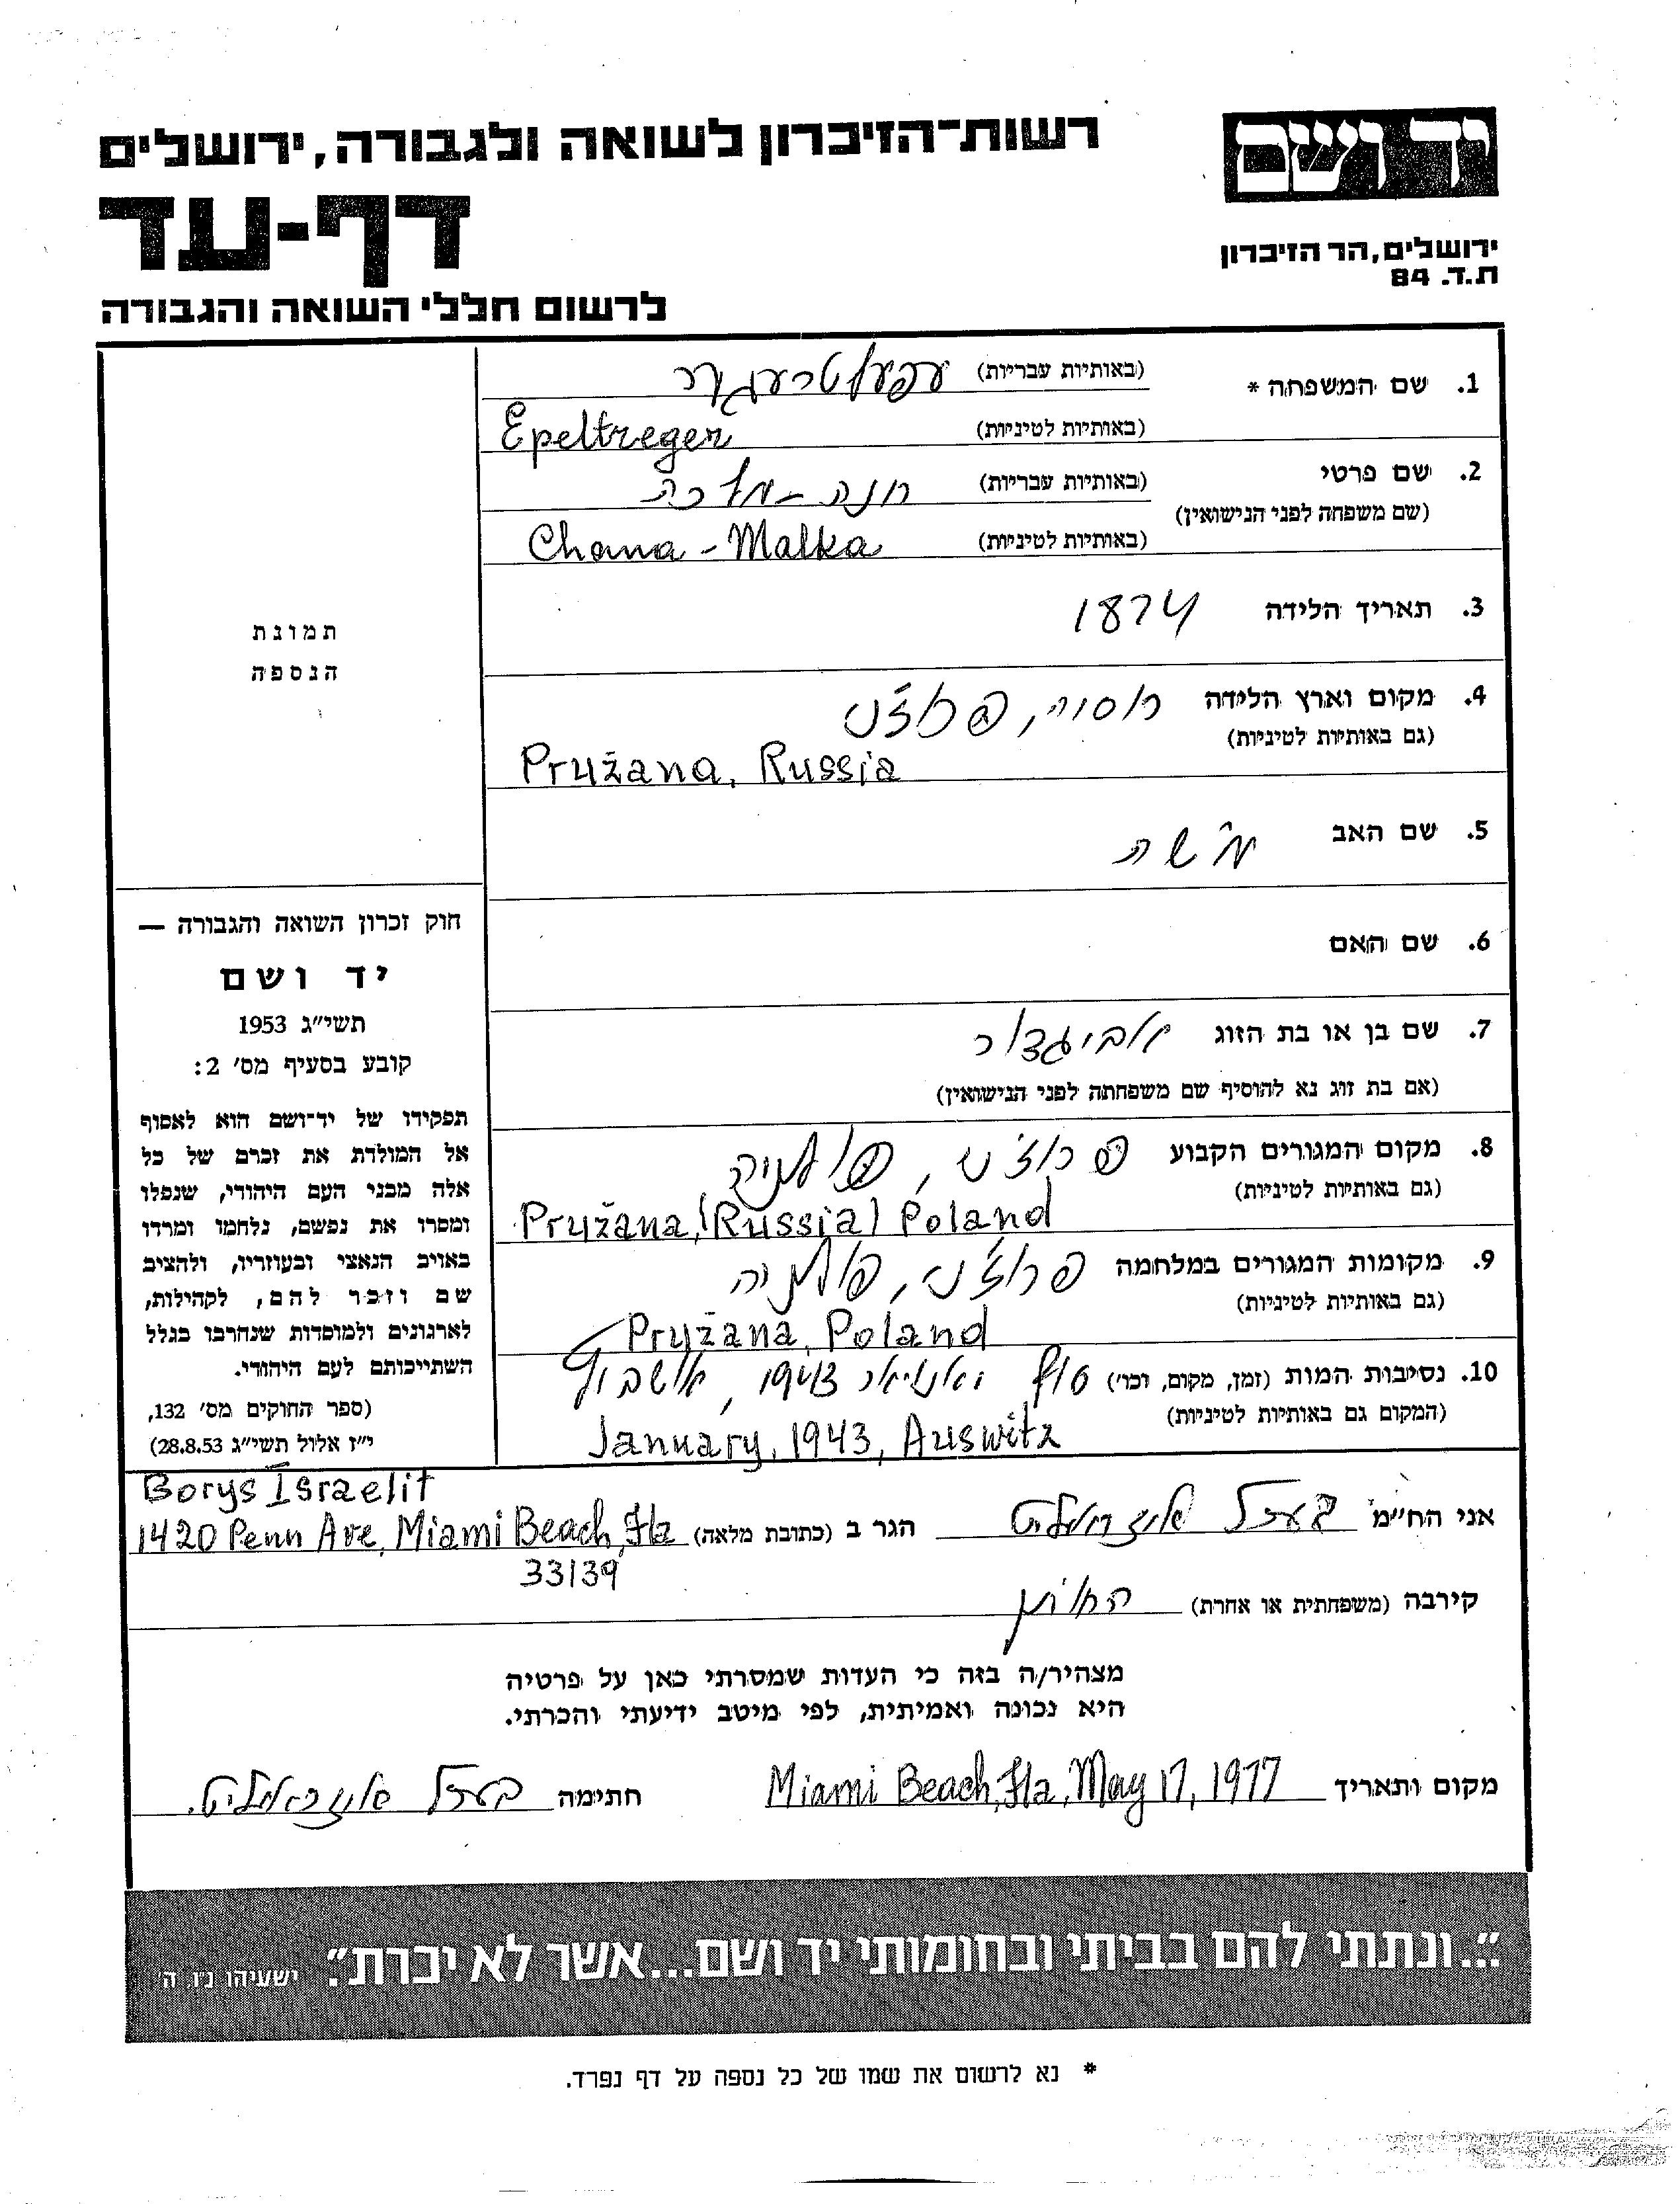 יד ושם
ירושלים, הר הזיכרון
ת.ד. 84
רשות־הזיכרון לשואה ולגבורה, ירושלים
דף-עד
לרשום חללי השואה והגבורה
1. שם המשפחה * (באותיות עבריות) עפעלטרעגער
(באותיות לטיניות) Epeltreger
2. שם פרטי (באותיות עבריות) חנה - מלכה
(שם משפחה לפני הנישואין)
(באותיות לטיניות) Chana - Malka
3. תאריך הלידה 1874
4. מקום וארץ הלידה רוסיה,
(גם באותיות לטיניות)
Pružana, Russia
5. שם האב משה
6. שם האם
7. שם בן או בת הזוג אביגדור
(אם בת זוג נא להוסיף שם משפחתה לפני הנישואין)
8. מקום המגורים הקבוע פרוז'נ, פולניה
(גם באותיות לטיניות)
Pružana, (Russia) Poland
9. מקומות המגורים במלחמה פרוז'נ, פולניה
(גם באותיות לטיניות)
Pružana, Poland
10. נסיבות המות (זמן, מקום, וכו') סוף יאנואר 1943,
(המקום גם באותיות לטיניות)
January, 1943, Auswitz
תמונת
הנספה
חוק זכרון השואה והגבורה —
יד ושם
תשי״ג 1953
קובע בסעיף מס׳ 2:
תפקידו של יד־ושם הוא לאסוף
אל המולדת את זכרם של כל
אלה מבני העם היהודי, שנפלו
ומסרו את נפשם, נלחמו ומרדו
באויב הנאצי ובעוזריו, ולהציב
שם וזכר להם, לקהילות,
לארגונים ולמוסדות שנחרבו בגלל
השתייכותם לעם היהודי.
(ספר החוקים מס׳ 132,
י״ז אלול תשי״ג 28.8.53)
Borys Israelit
אני הח״מ בערל איזראעליט הגר ב (כתובת מלאה) 1420 Penn Ave, Miami Beach, Fla
33139
קירבה (משפחתית או אחרת)
מצהיר/ה בזה כי העדות שמסרתי כאן על פרטיה
היא נכונה ואמיתית, לפי מיטב ידיעתי והכרתי.
מקום ותאריך Miami Beach, Fla, May 17, 1977 חתימה בערל איזראעליט
״...ונתתי להם בביתי ובחומותי יד ושם...אשר לא יכרת״. ישעיהו נ״ו, ה׳
* נא לרשום את שמו של כל נספה על דף נפרד.